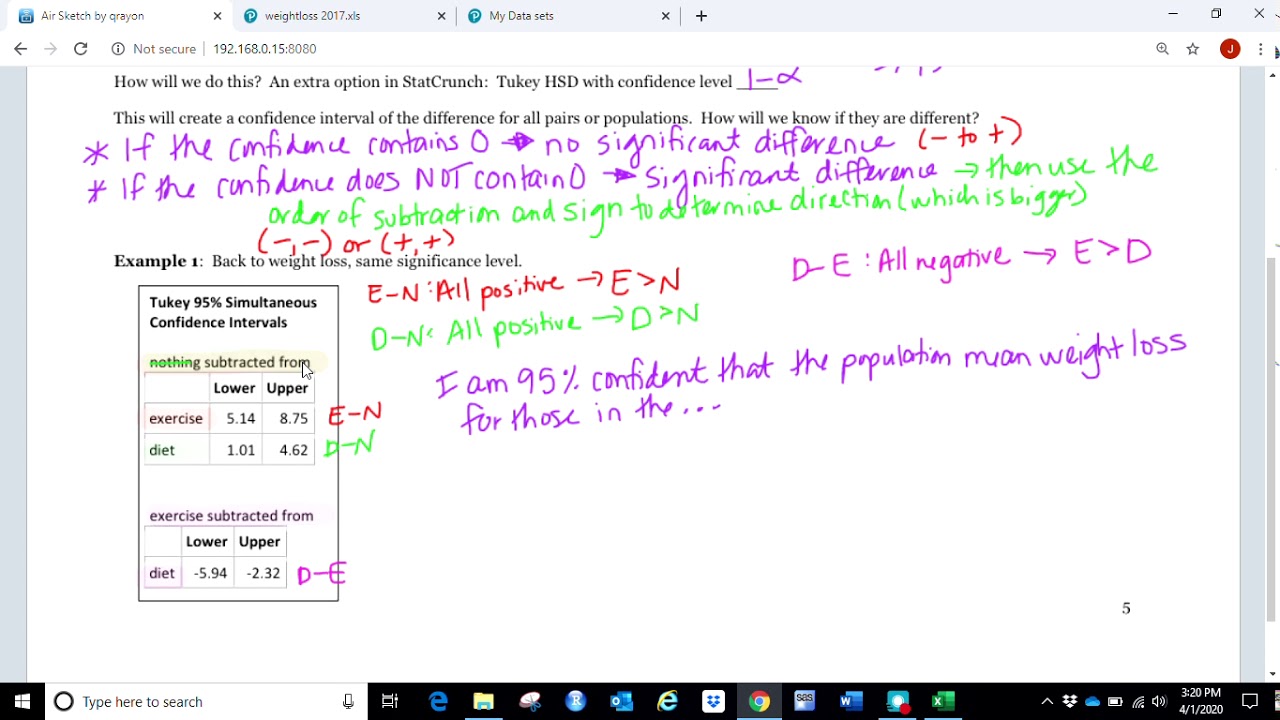 Air Sketch by qrayon
weightloss 2017.xls
My Data sets
Not secure 192.168.0.15:8080
J
How will we do this? An extra option in StatCrunch: Tukey HSD with confidence level 1-α
This will create a confidence interval of the difference for all pairs or populations. How will we know if they are different?
* If the confidence contains 0 → no significant difference (- to +)
* If the confidence does NOT contain 0 → significant difference → then use the
order of subtraction and sign to determine direction (which is bigger)
(-,-) or (+,+)
Example 1: Back to weight loss, same significance level.
D-E: All negative → E>D
E-N: All positive → E>N
D-N: All positive → D>N
I am 95% confident that the population mean weight loss
for those in the...
Tukey 95% Simultaneous
Confidence Intervals
nothing subtracted from
Lower Upper
exercise 5.14 8.75 E-N
diet 1.01 4.62 D-N
exercise subtracted from
Lower Upper
diet -5.94 -2.32 D-E
5
Type here to search
3:20 PM
4/1/2020